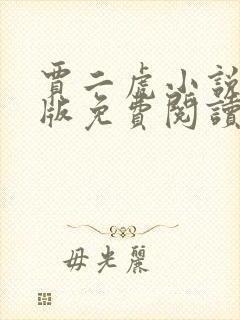 賈二虎小說
版免費閱讀
毋光麗